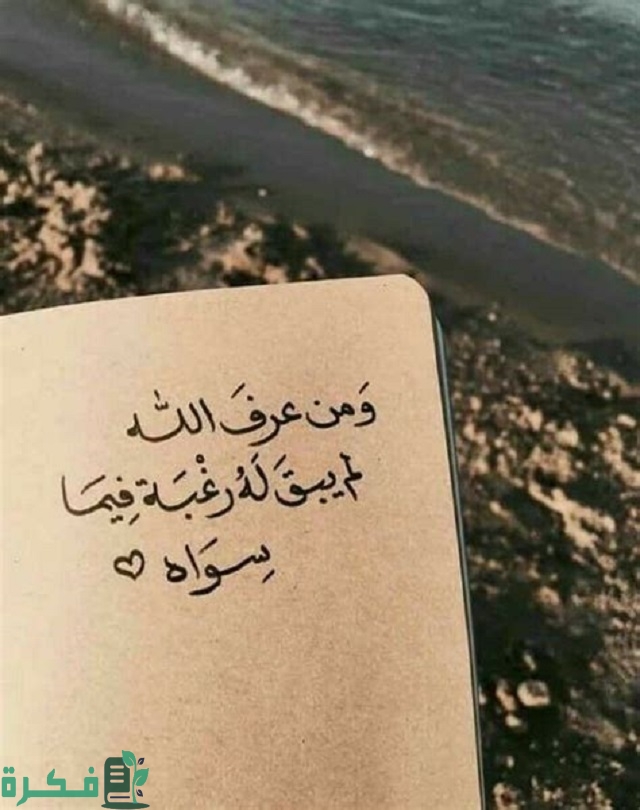 وَمن عرفَ الله
لم يبقَ لَهُ رغْبَة فِيمَا
سِوَاه ♡
فكرة